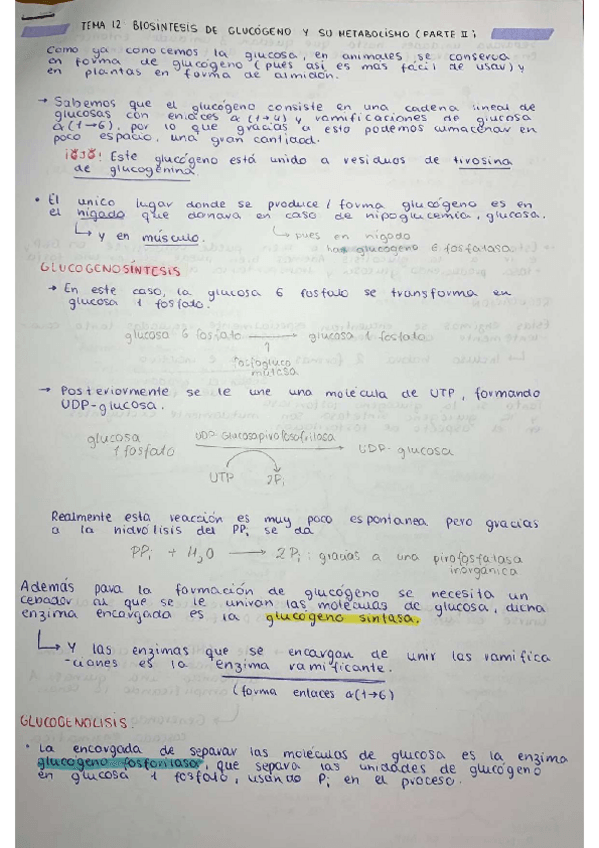 TEMA 12 BIOSÍNTESIS DE GLUCÓGENO Y SU METABOLISMO (PARTE II):
Como ya conocemos la glucosa, en animales se conserva
en forma de glucógeno (pues así es más fácil de usar) y
en plantas en forma de almidón.
→ Sabemos que el glucógeno consiste en una cadena lineal de
glucosas con enlaces α(1→4) y ramificaciones de glucosa
α(1→6), por lo que gracias a esto podemos almacenar en
poco espacio, una gran cantidad.
¡OJO! Este glucógeno está unido a residuos de tirosina
de glucogenina.
• El unico lugar donde se produce/forma glucógeno es en
el hígado que donará en caso de hipoglucemia, glucosa.
y en músculo.
pues en hígado
hay glucogeno 6 fosfatasa.
GLUCOGENOSÍNTESIS
→ En este caso, la glucosa 6 fosfato se transforma en
glucosa 1 fosfato.
glucosa 6 fosfato → glucosa 1 fosfato.
fosfogluco
mutasa
→ Posteriormente se le une una molécula de UTP, formando
UDP-glucosa.
glucosa
1 fosfato
UDP Glucosapirofosforilasa
→ UDP-glucosa
UTP 2Pi
Realmente esta reacción es muy poco espontanea pero gracias
a la hidrólisis del PPi se da
PPi + H2O → 2Pi: gracias a una pirofosfatasa
inorgánica
Además para la formación de glucógeno se necesita un
cebador al que se le unirán las moléculas de glucosa, dicha
enzima encargada es la glucógeno sintasa.
Y las enzimas que se encargan de unir las ramifica
-ciones es la enzima ramificante.
(forma enlaces α(1→6)
GLUCOGENOLISIS.
• La encargada de separar las moléculas de glucosa es la enzima
glucógeno fosforilasa, que separa las unidades de glucógeno
en glucosa 1 fosfato, usando Pi en el proceso.